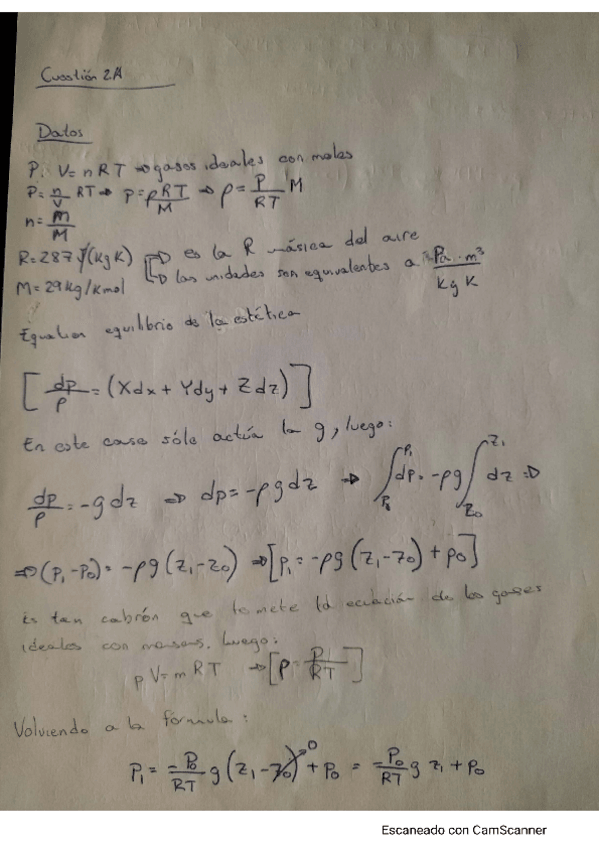 Cuestión 2A
Datos
P. V = n RT → gases ideales con moles
P = n/V RT → P = ρRT/M → ρ = P/RT M
n = m/M
R = 287 J/(Kg K) → es la R másica del aire
M = 29 kg/kmol → las unidades son equivalentes a: Pa · m³/Kg K
equilibrio de la estática
[dp/ρ = (Xdx + Ydy + Zdz)]
En este caso sólo actúa la g, luego:
dp/ρ = -g dz ⇒ dp = -ρg dz ⇒ ∫P₀P₁ dp = -ρg ∫Z₀Z₁ dz ⇒
⇒ (P₁ - P₀) = -ρg (Z₁ - Z₀) ⇒ [P₁ = -ρg (Z₁ - Z₀) + P₀]
Es tan cabrón que te mete la ecuación de los gases
ideales con masas. Luego:
pV = m RT → [ρ = P/RT]
Volviendo a la fórmula:
P₁ = -P₀/RT g (Z₁ - Z₀)⁰ + P₀ = -P₀/RT g Z₁ + P₀
Escaneado con CamScanner